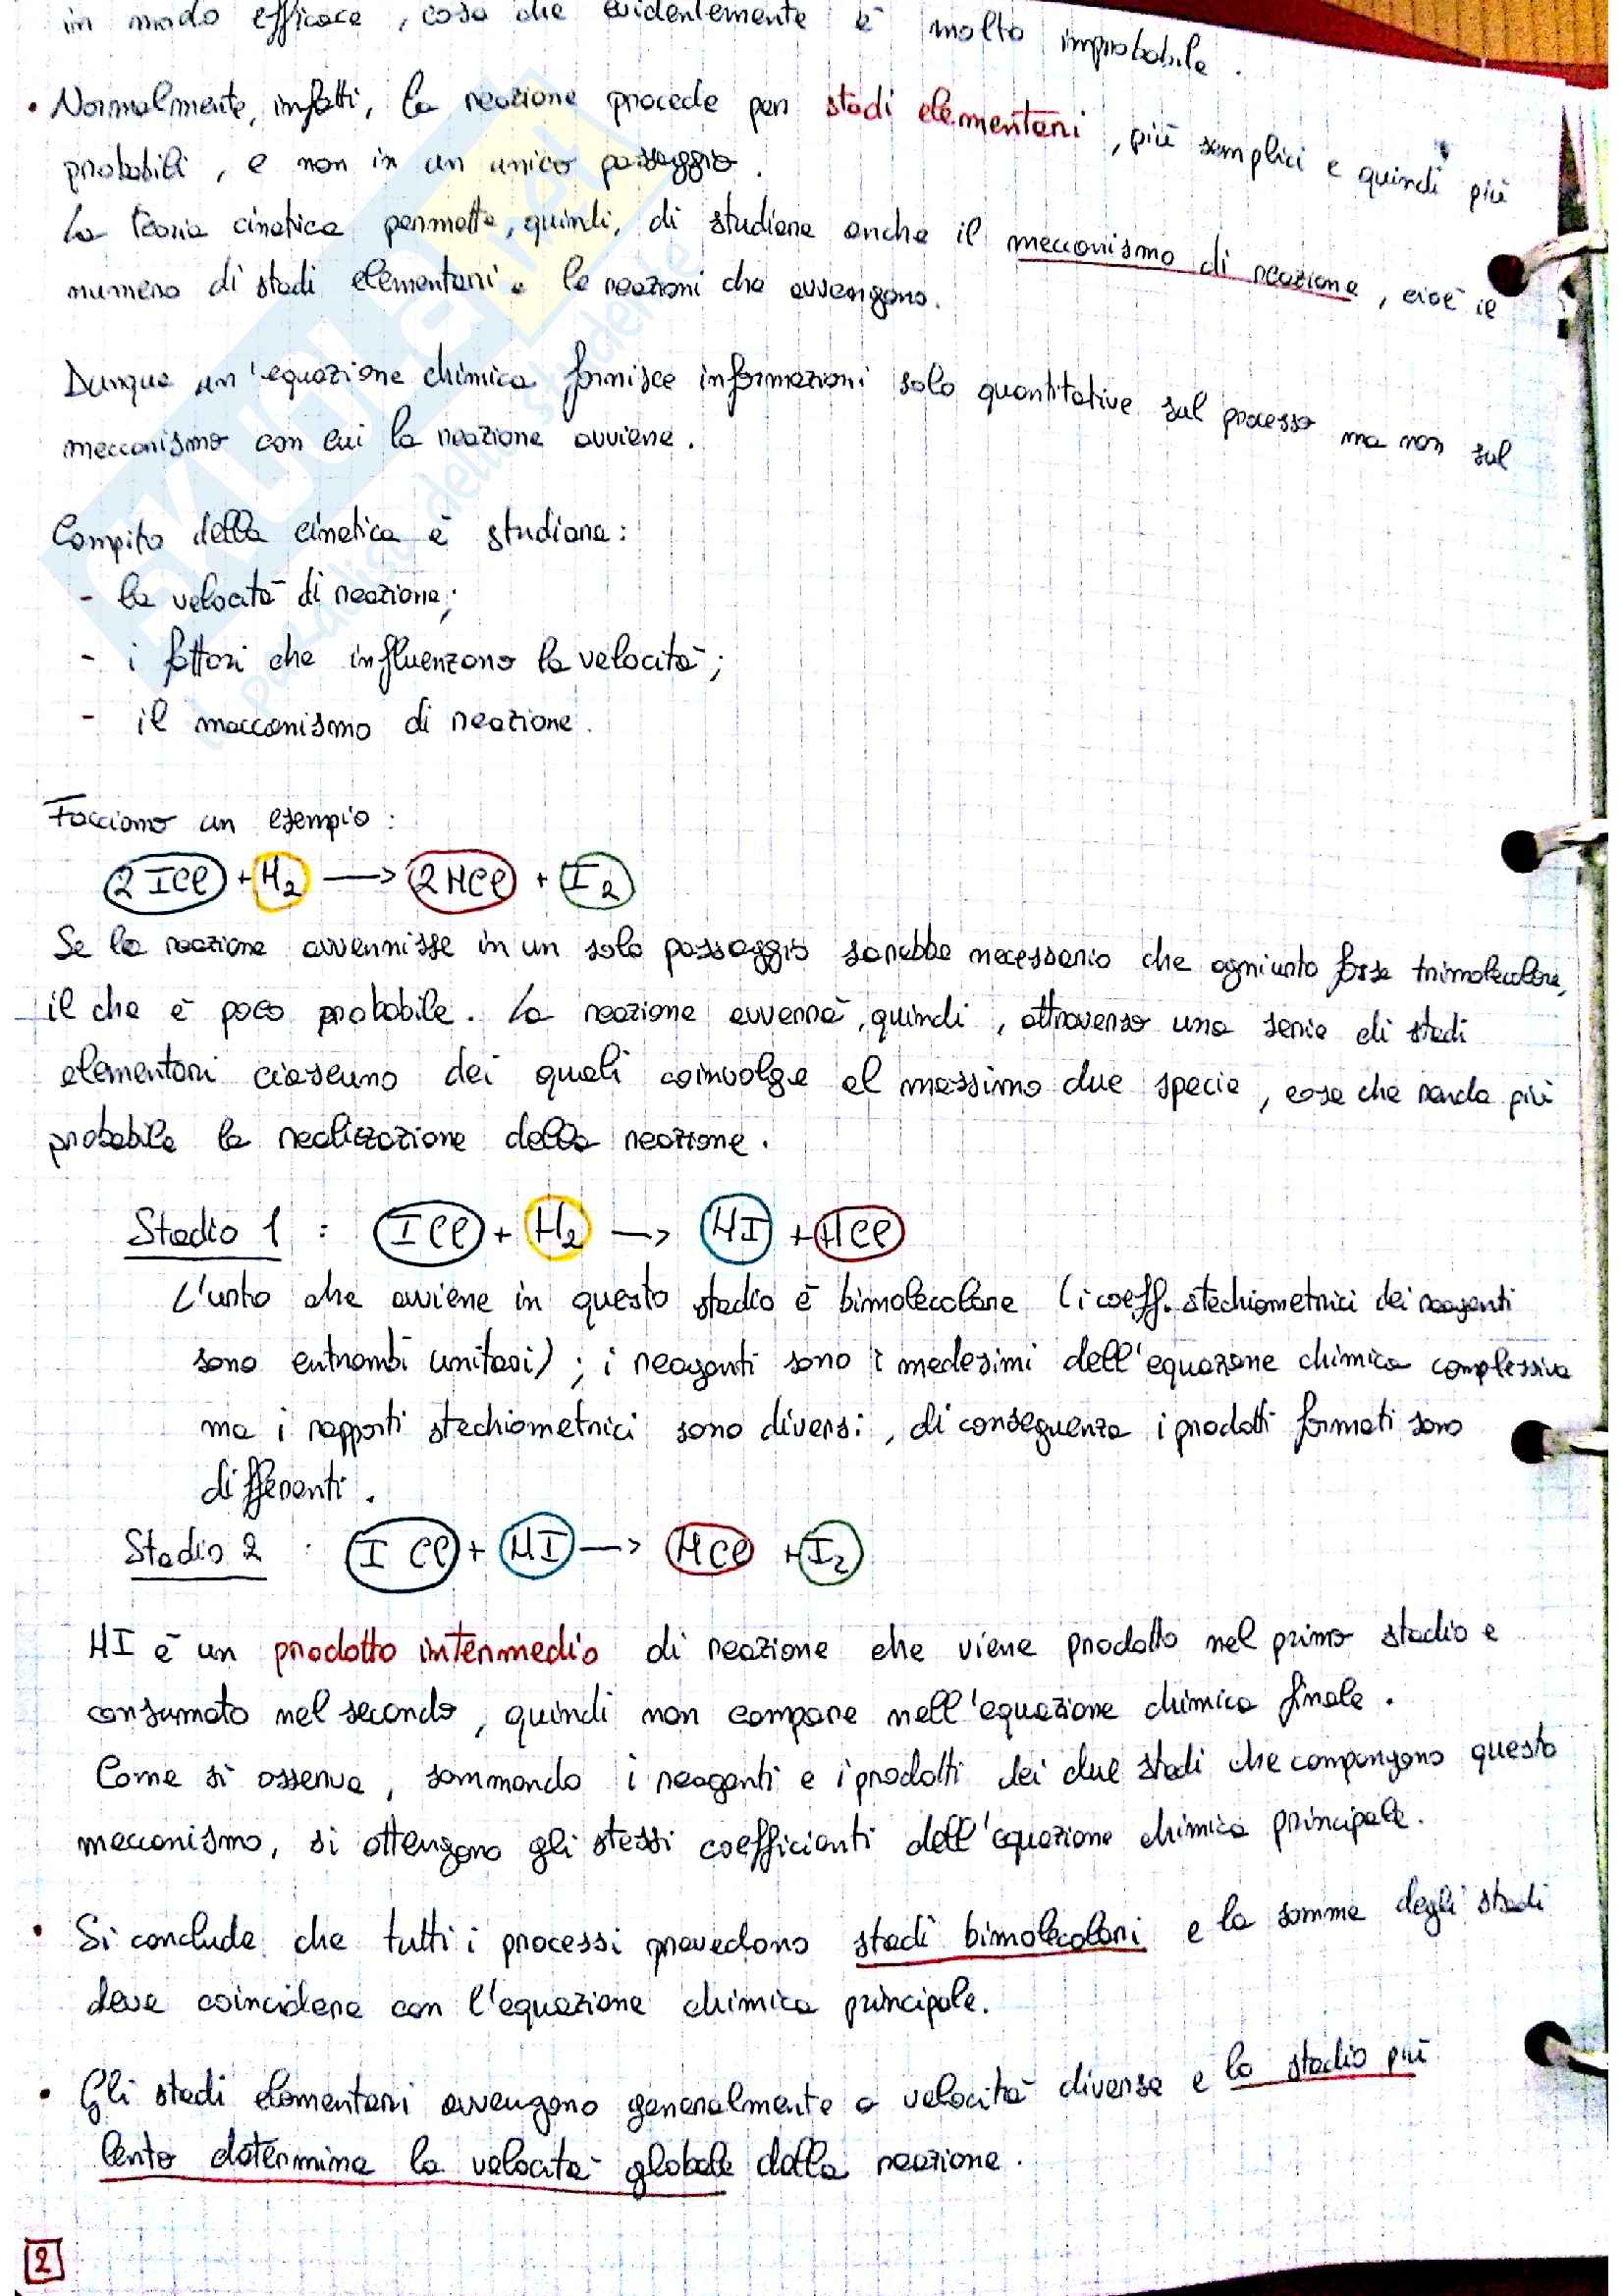 in modo efficace, cosa che evidentemente è molto improbabile.
• Normalmente, infatti, la reazione procede per stadi elementari, più semplici e quindi più
probabili, e non in un unico passaggio.
La teoria cinetica permette, quindi, di studiare anche il meccanismo di reazione, cioè il
numero di stadi elementari e le reazioni che avvengono.
Dunque un'equazione chimica fornisce informazioni solo quantitative sul processo ma non sul
meccanismo con cui la reazione avviene.
Compito della cinetica è studiare:
- la velocità di reazione;
- i fattori che influenzano la velocità;
- il meccanismo di reazione.
Facciamo un esempio:
2 ICl + H₂ → 2 HCl + I₂
Se la reazione avvenisse in un solo passaggio sarebbe necessario che ogni urto fosse trimolecolare,
il che è poco probabile. La reazione avverrà, quindi, attraverso una serie di stadi
elementari ciascuno dei quali coinvolge al massimo due specie, cosa che rende più
probabile la realizzazione della reazione.
Stadio 1 : ICl + H₂ → HI + HCl
L'urto che avviene in questo stadio è bimolecolare (i coeff. stechiometrici dei reagenti
sono entrambi unitari); i reagenti sono i medesimi dell'equazione chimica complessiva
ma i rapporti stechiometrici sono diversi, di conseguenza i prodotti formati sono
differenti.
Stadio 2 : ICl + HI → HCl + I₂
HI è un prodotto intermedio di reazione che viene prodotto nel primo stadio e
consumato nel secondo, quindi non compare nell'equazione chimica finale.
Come si osserva, sommando i reagenti e i prodotti dei due stadi che compongono questo
meccanismo, si ottengono gli stessi coefficienti dell'equazione chimica principale.
• Si conclude che tutti i processi prevedono stadi bimolecolari e la somma degli stadi
deve coincidere con l'equazione chimica principale.
• Gli stadi elementari avvengono generalmente a velocità diverse e lo stadio più
lento determina la velocità globale della reazione.
2